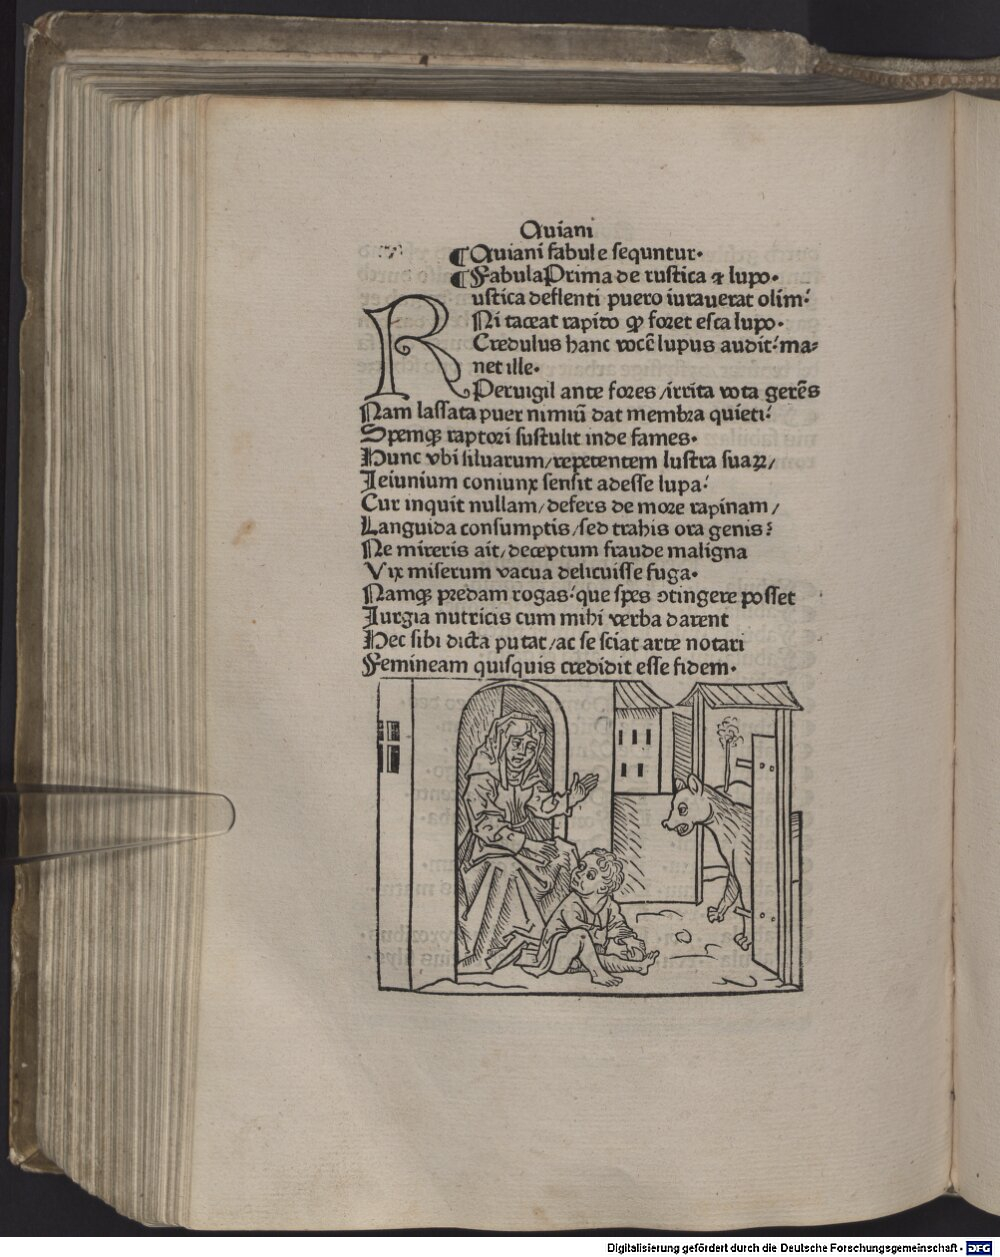 Auiani
¶Auiani fabule sequntur.
¶Fabula Prima de rustica ⁊ lupo.
Rustica deflenti puero iurauerat olim:
Ni taceat rapido ꝙ foret esca lupo.
Credulus hanc vocē lupus audit: ma-
net ille.
Peruigil ante fores /irrita vota gerēs
Nam lassata puer nimiū dat membra quieti:
Spemqꝫ raptori sustulit inde fames.
Hunc vbi siluarum/repetentem lustra suaꝝ/
Jeiunium coniunx sensit adesse lupa:
Cur inquit nullam/defers de more rapinam/
Languida consumptis/sed trahis ora genis?
Ne mireris ait/deceptum fraude maligna
Vix miserum vacua delicuisse fuga.
Namqꝫ predam rogas: que spes ↄtingere posset
Jurgia nutricis cum mihi verba darent
Hec sibi dicta putat/ac se sciat arte notari
Femineam quisquis credidit esse fidem.
Digitalisierung gefördert durch die Deutsche Forschungsgemeinschaft - DFG